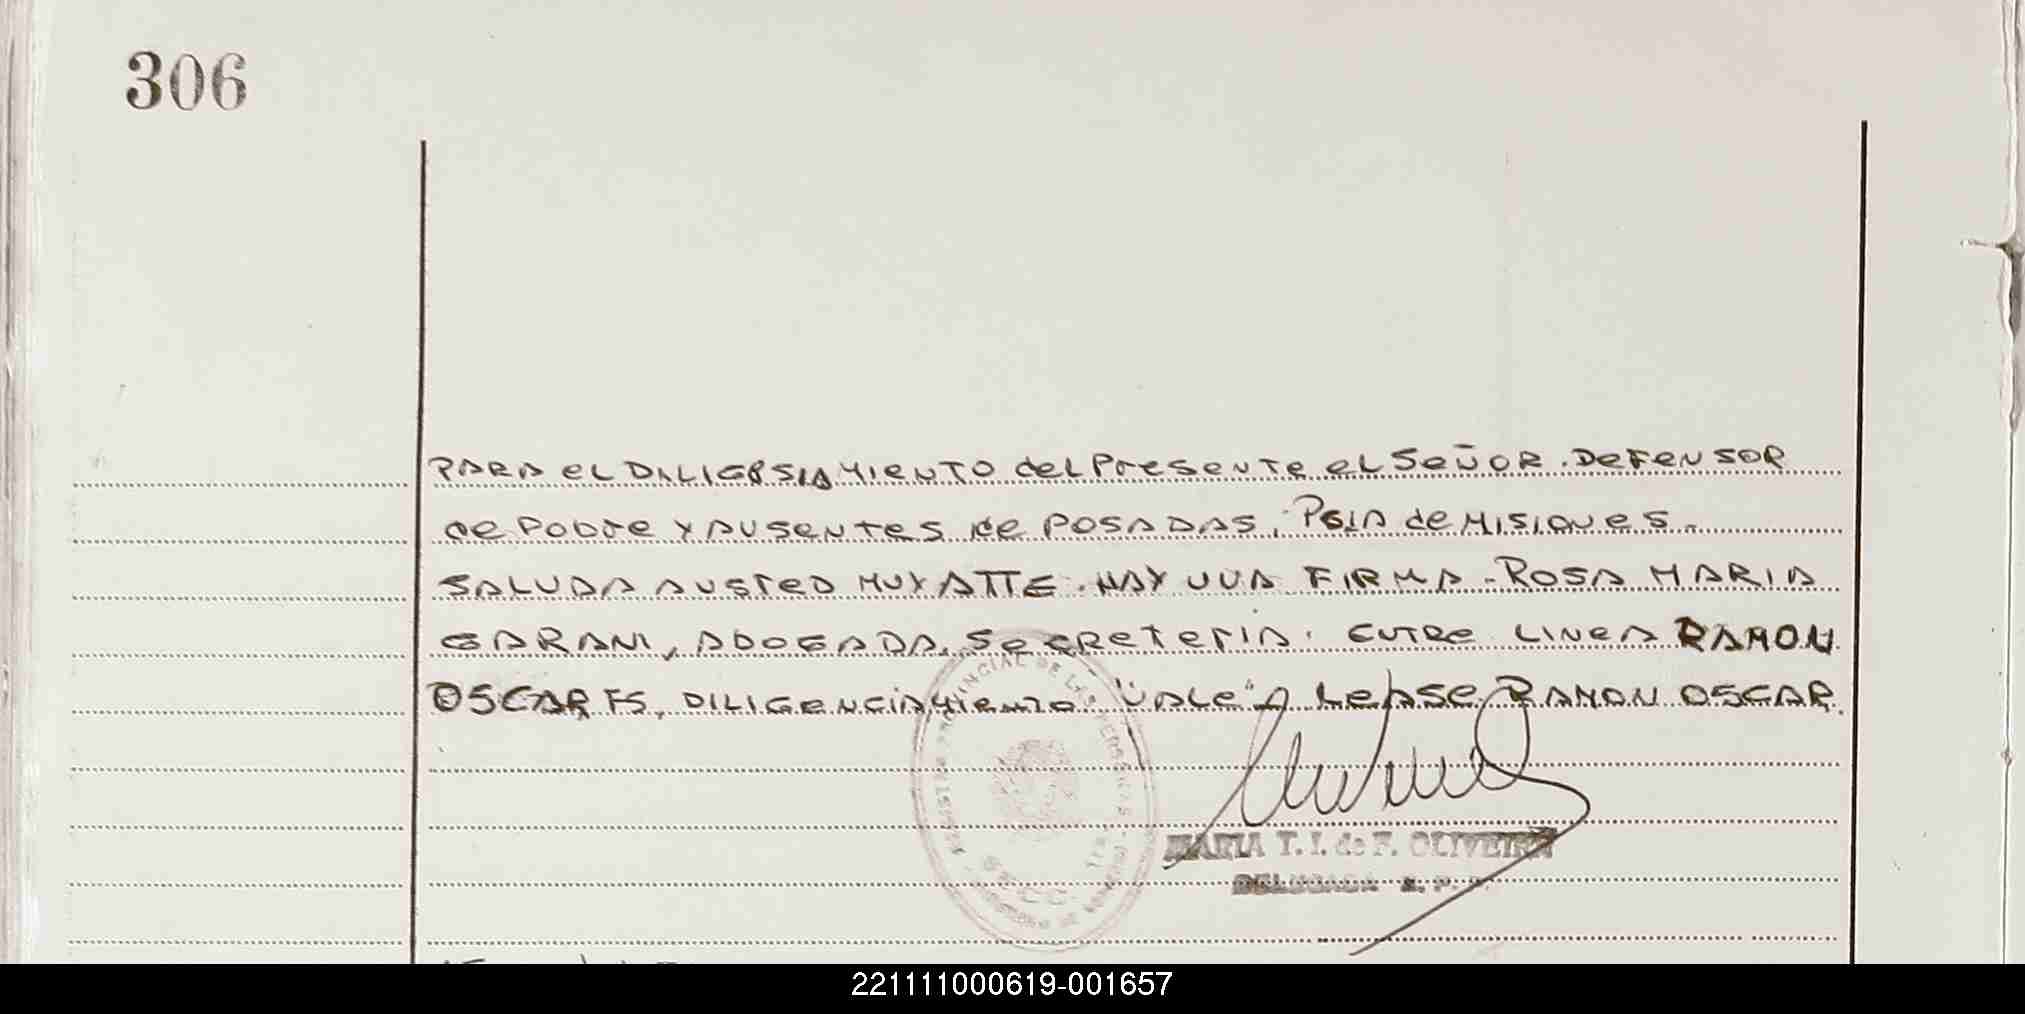 306
PARA eL DILIGESIAMIENTO deL PreSeNTe eL SeÑOR. DeFeNSOR
de PObre Y AUSeNTeS de POSADAS, PciA de MISIONeS.
SALUDA AUSTeD MUY ATTE. HAY UNA FIRMA - ROSA MARIA
GARANI, ABOGADA. SecReTeriA. ENTRe LINeA RAMON
OSCAR FS, DILIGeNCIAMIeNTO "VALe" LeASe RAMON OSCAR.
MARIA T. I. de F. OLIVEIRA
DELEGADA R. P.
221111000619-001657